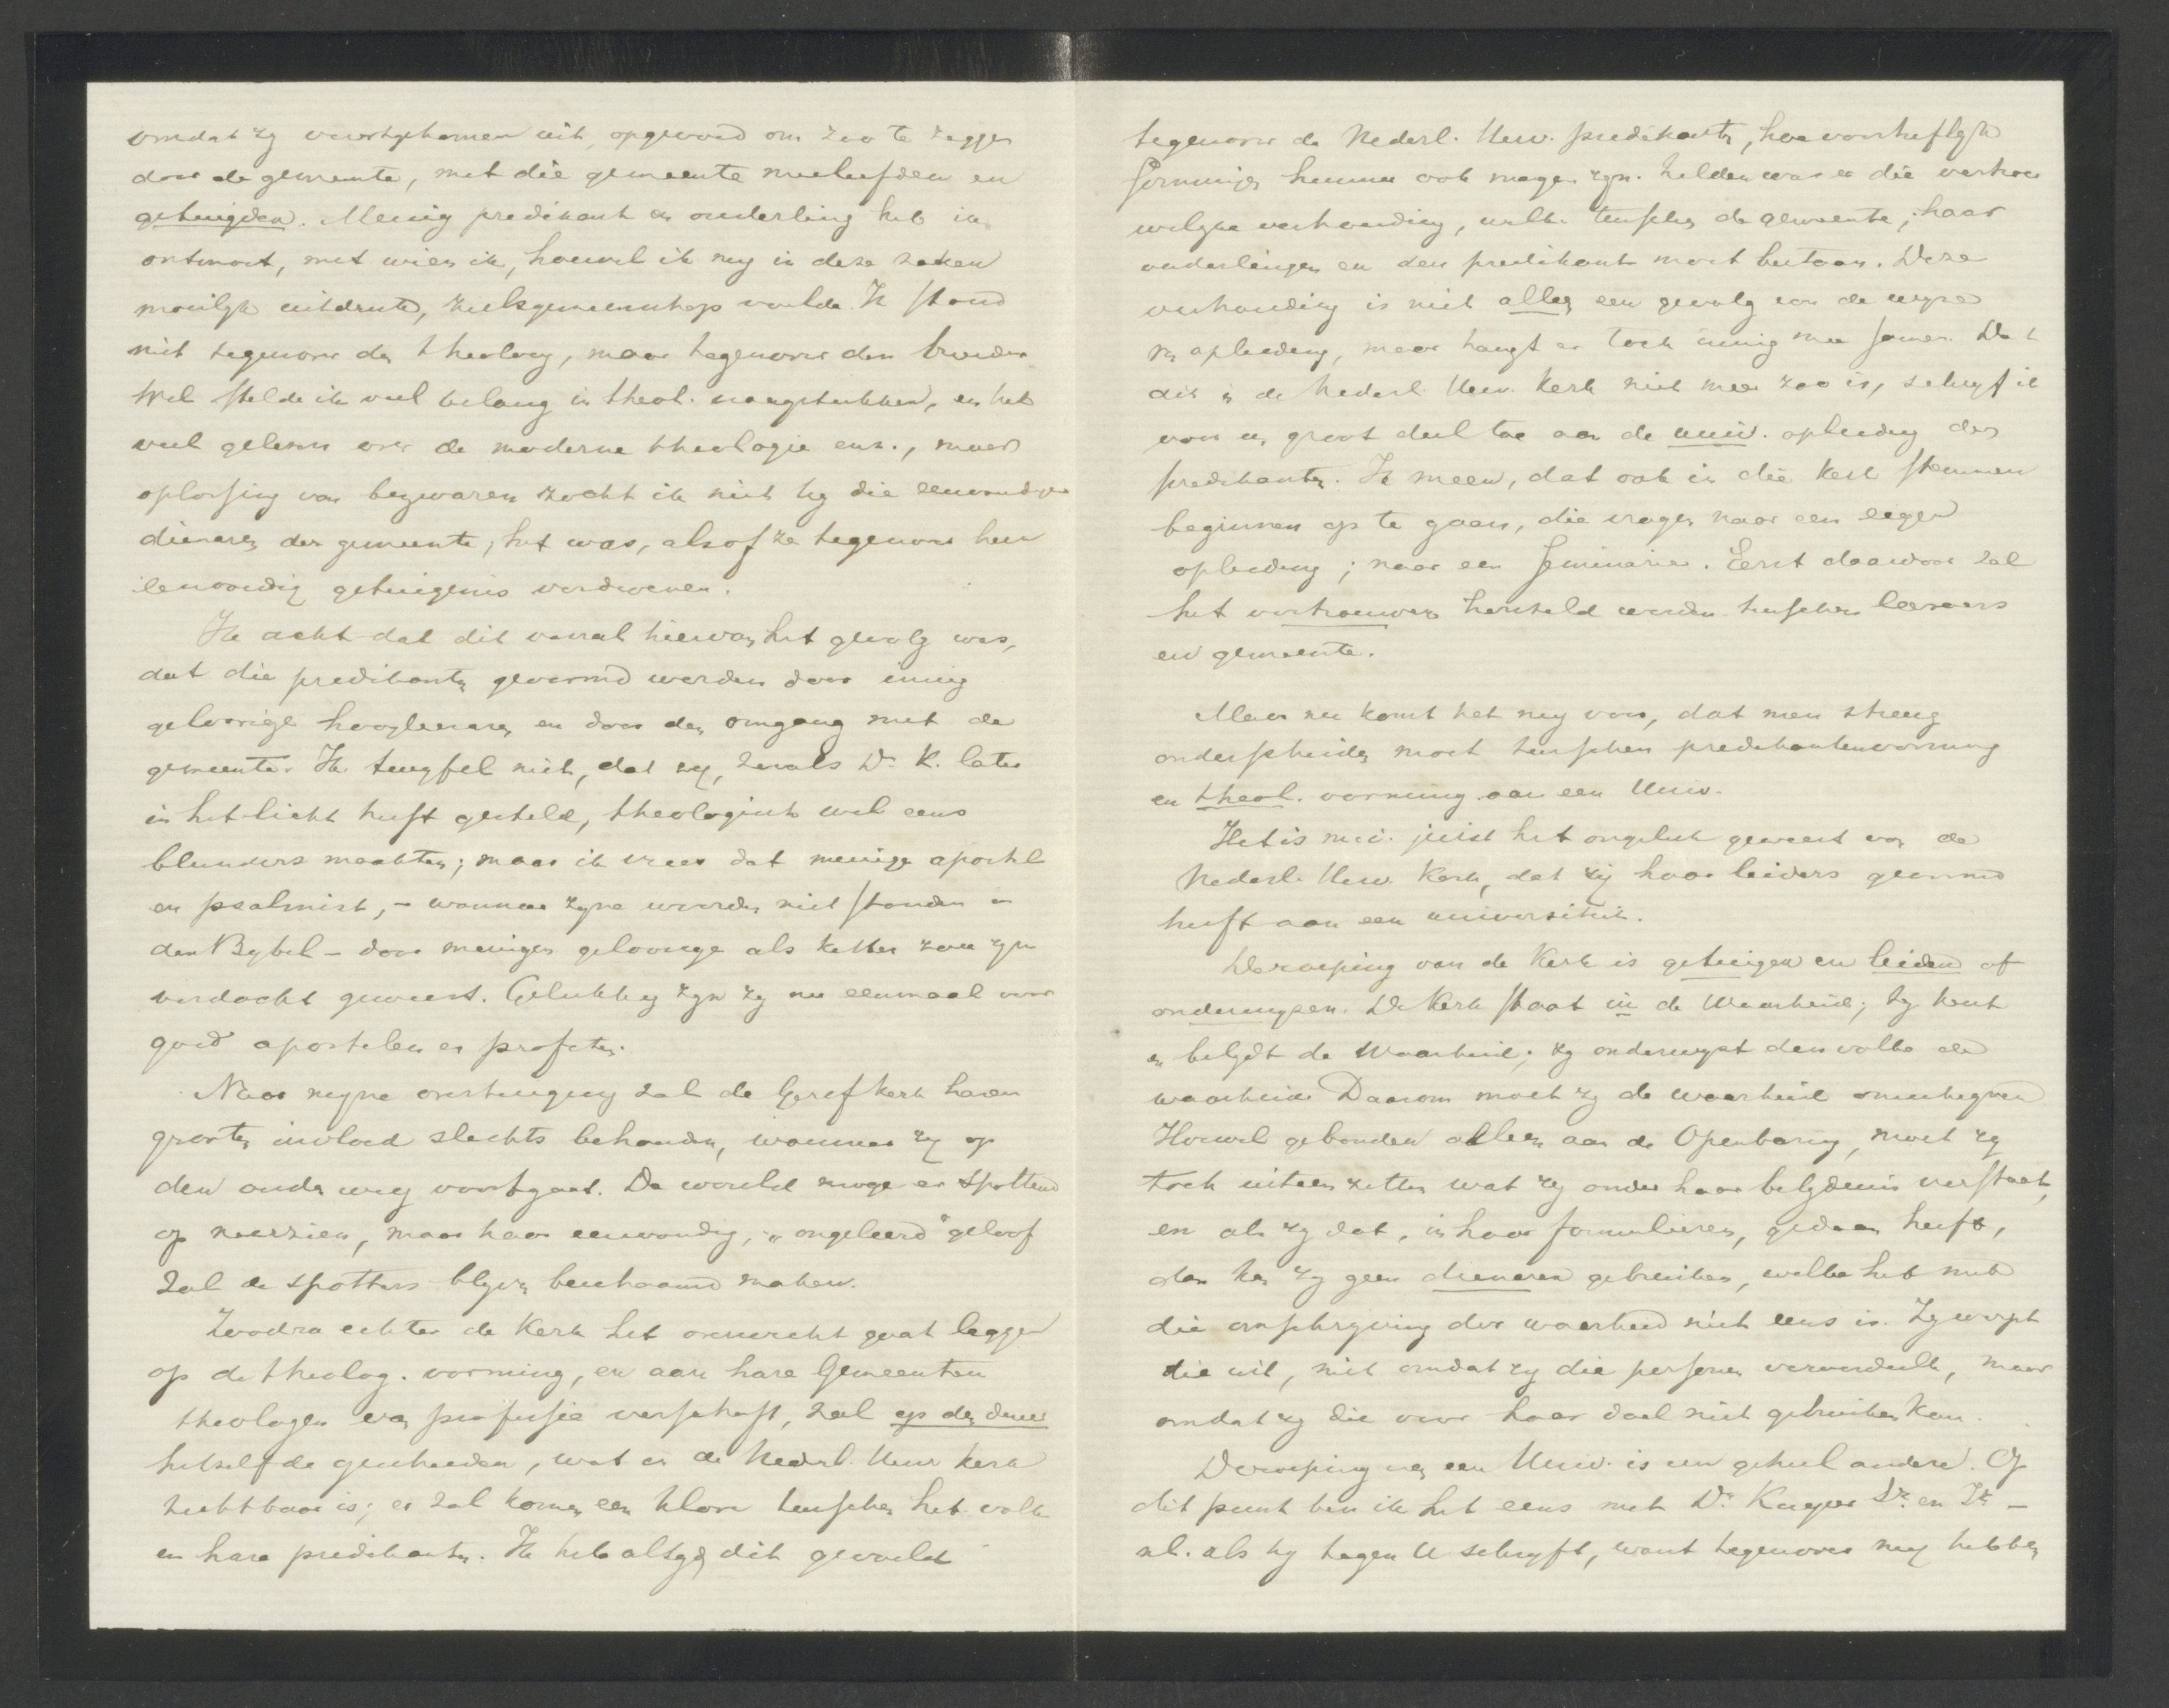 omdat zy voortgekomen uit, opgevoed om zoo te zeggen
door de gemeente, met die gemeente meeleefden en
getuigden. Menig predikant en ouderling heb ik
ontmoet, met wien ik, hoewel ik my in deze zaken
moeilyk uitdrukte, zielsgemeenschap voelde. Ik stond
niet tegenover den theoloog, maar tegenover den broeder
Wel stelde ik veel belang in theol. vraagstukken, en heb
veel gelezen over de moderne theologie enz., maar
oplossing van bezwaren zocht ik niet by die eenvoudige
dienaren der gemeente; het was, alsof ze tegenover hun
eenvoudig getuigenis verdwenen.
Ik acht dat dit vooral hiervan het gevolg was,
dat die predikanten gevormd werden door innig
geloovige hoogleeraren en door den omgang met de
gemeente. Ik twyfel niet, dat zy, zooals Dr. K. later
in het licht heeft gesteld, theologisch wel eens
blunders maakten; maar ik vrees dat menige apostel
en psalmist, - wanneer zyne woorden niet stonden in
den Bybel - door menigen geloovige als ketter zou zyn
verdacht geweest. Gelukkig zyn zy nu eenmaal voor
goed apostelen en profeten.
Naar myne overtuiging zal de Geref kerk haren
grooten invloed slechts behouden, wanneer zy op
den ouden weg voortgaat. De wereld moge er spottend
op neerzien, maar haar eenvoudig, "ongeleerd" geloof
zal de spotters blyven beschaamd maken.
Zoodra echter de Kerk het overwicht gaat leggen
op de theolog. vorming, en aan hare Gemeenten
theologen van professie verschaft, zal op den duur
hetzelfde geschieden, wat in de Nederl. Herv kerk
zichtbaar is; er zal komen een kloof tusschen het volk
en hare predikanten. Ik heb altyd dit gevoeld
tegenover de Nederl. Herv. predikanten, hoe voortreflyk
sommigen hunner ook mogen zyn. Zelden was er die vertrou
welyke verhouding, welke tusschen de gemeente, haar
ouderlingen en den predikant moet bestaan. Deze
verhouding is niet alleen een gevolg van de wyze
van opleiding, maar hangt er toch innig mee samen. Dat
dit in de Nederl. Herv. Kerk niet meer zoo is, schryf ik
voor een groot deel toe aan de univ. opleiding der
predikanten. Ik meen, dat ook in die kerk stemmen
beginnen op te gaan, die vragen naar een eigen
opleiding; naar een Seminarie. Eerst daardoor zal
het vertrouwen hersteld worden tusschen leeraars
en gemeente.
Maar nu komt het my voor, dat men streng
onderscheiden moet tusschen predikantenvorming
en theol. vorming aan een Univ.
Het is m.i. juist het ongeluk geweest van de
Nederl. Herv. Kerk, dat zij haar leiders gevormd
heeft aan een universiteit.
De roeping van de Kerk is getuigen en leiden of
onderwyzen. De Kerk staat in de Waarheid; zy kent
en belydt de Waarheid; zy onderwyst den volke die
waarheid. Daarom moet zy de waarheid
Hoewel gebonden alleen aan de Openbaring, moet zy
toch uiteen zetten wat zy onder haar belydenis verstaat,
en als zy dat, in haar formulieren, gedaan heeft,
dan kan zy geen dienaren gebruiken, welke het met
die omschryving der waarheid niet eens is. Zy werpt
die uit, niet omdat zy die personen veroordeelt, maar
omdat zy die voor haar doel niet gebruiken kan.
De roeping van een Univ. is een geheel andere. Op
dit punt ben ik het eens met Dr. Kuyper Sr. en Jr. -
nl. als hy tegen U schryft, want tegenover my hebben